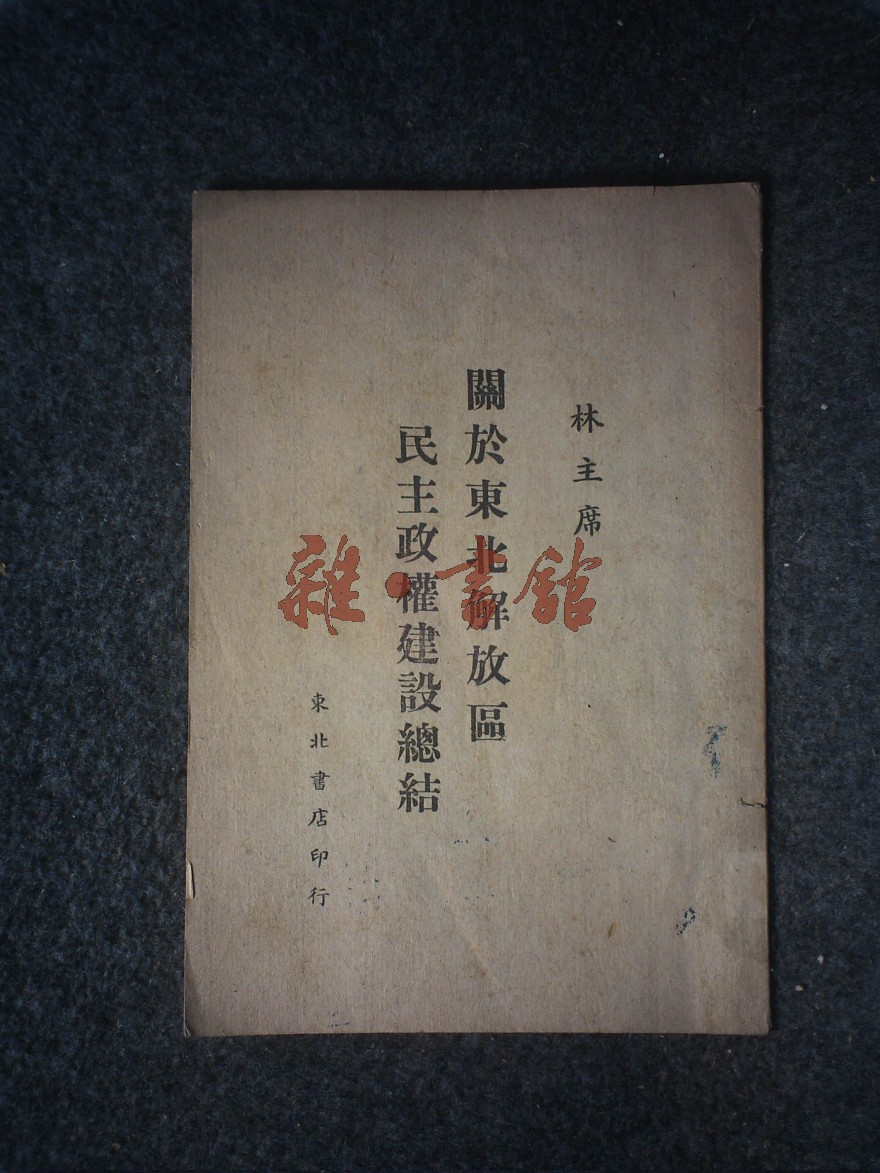 林主席
關於東北解放區
民主政權建設總結
東北書店印行
雜·書館